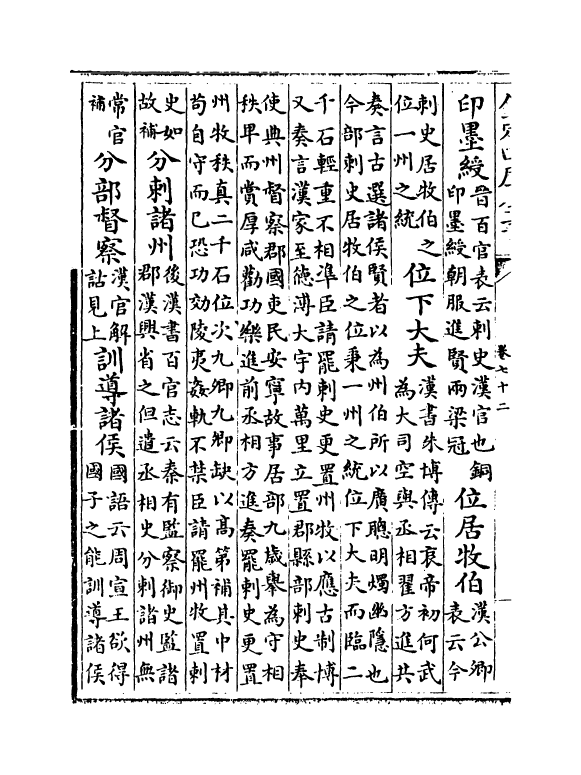 卷七十二
印墨綬
晉百官表云刺史漢官也銅
印墨綬朝服進賢兩梁冠
位居牧伯
漢公卿
表云今
刺史居牧伯之
位一州之統
位下大夫
漢書朱博傳云哀帝初何武
為大司空與丞相翟方進共
奏言古選諸侯賢者以為州伯所以廣聰明燭幽隱也
今部刺史居牧伯之位秉一州之統位下大夫而臨二
千石輕重不相準臣請罷刺史更置州牧以應古制博
又奏言漢家至德溥大宇内萬里立置郡縣部刺史奉
使典州督察郡國吏民安寧故事居部九歲舉為守相
秩卑而賞厚咸勸功樂進前丞相方進奏罷刺史更置
州牧秩真二千石位次九卿九卿缺以高第補其中材
苟自守而已恐功効陵夷姦軌不禁臣請罷州牧置刺
史如
故補
分刺諸州
後漢書百官志云秦有監察御史監諸
郡漢興省之但遣丞相史分刺諸州無
常官
補
分部督察
漢官解
詁見上
訓導諸侯
國語云周宣王欲得
國子之能訓導諸侯